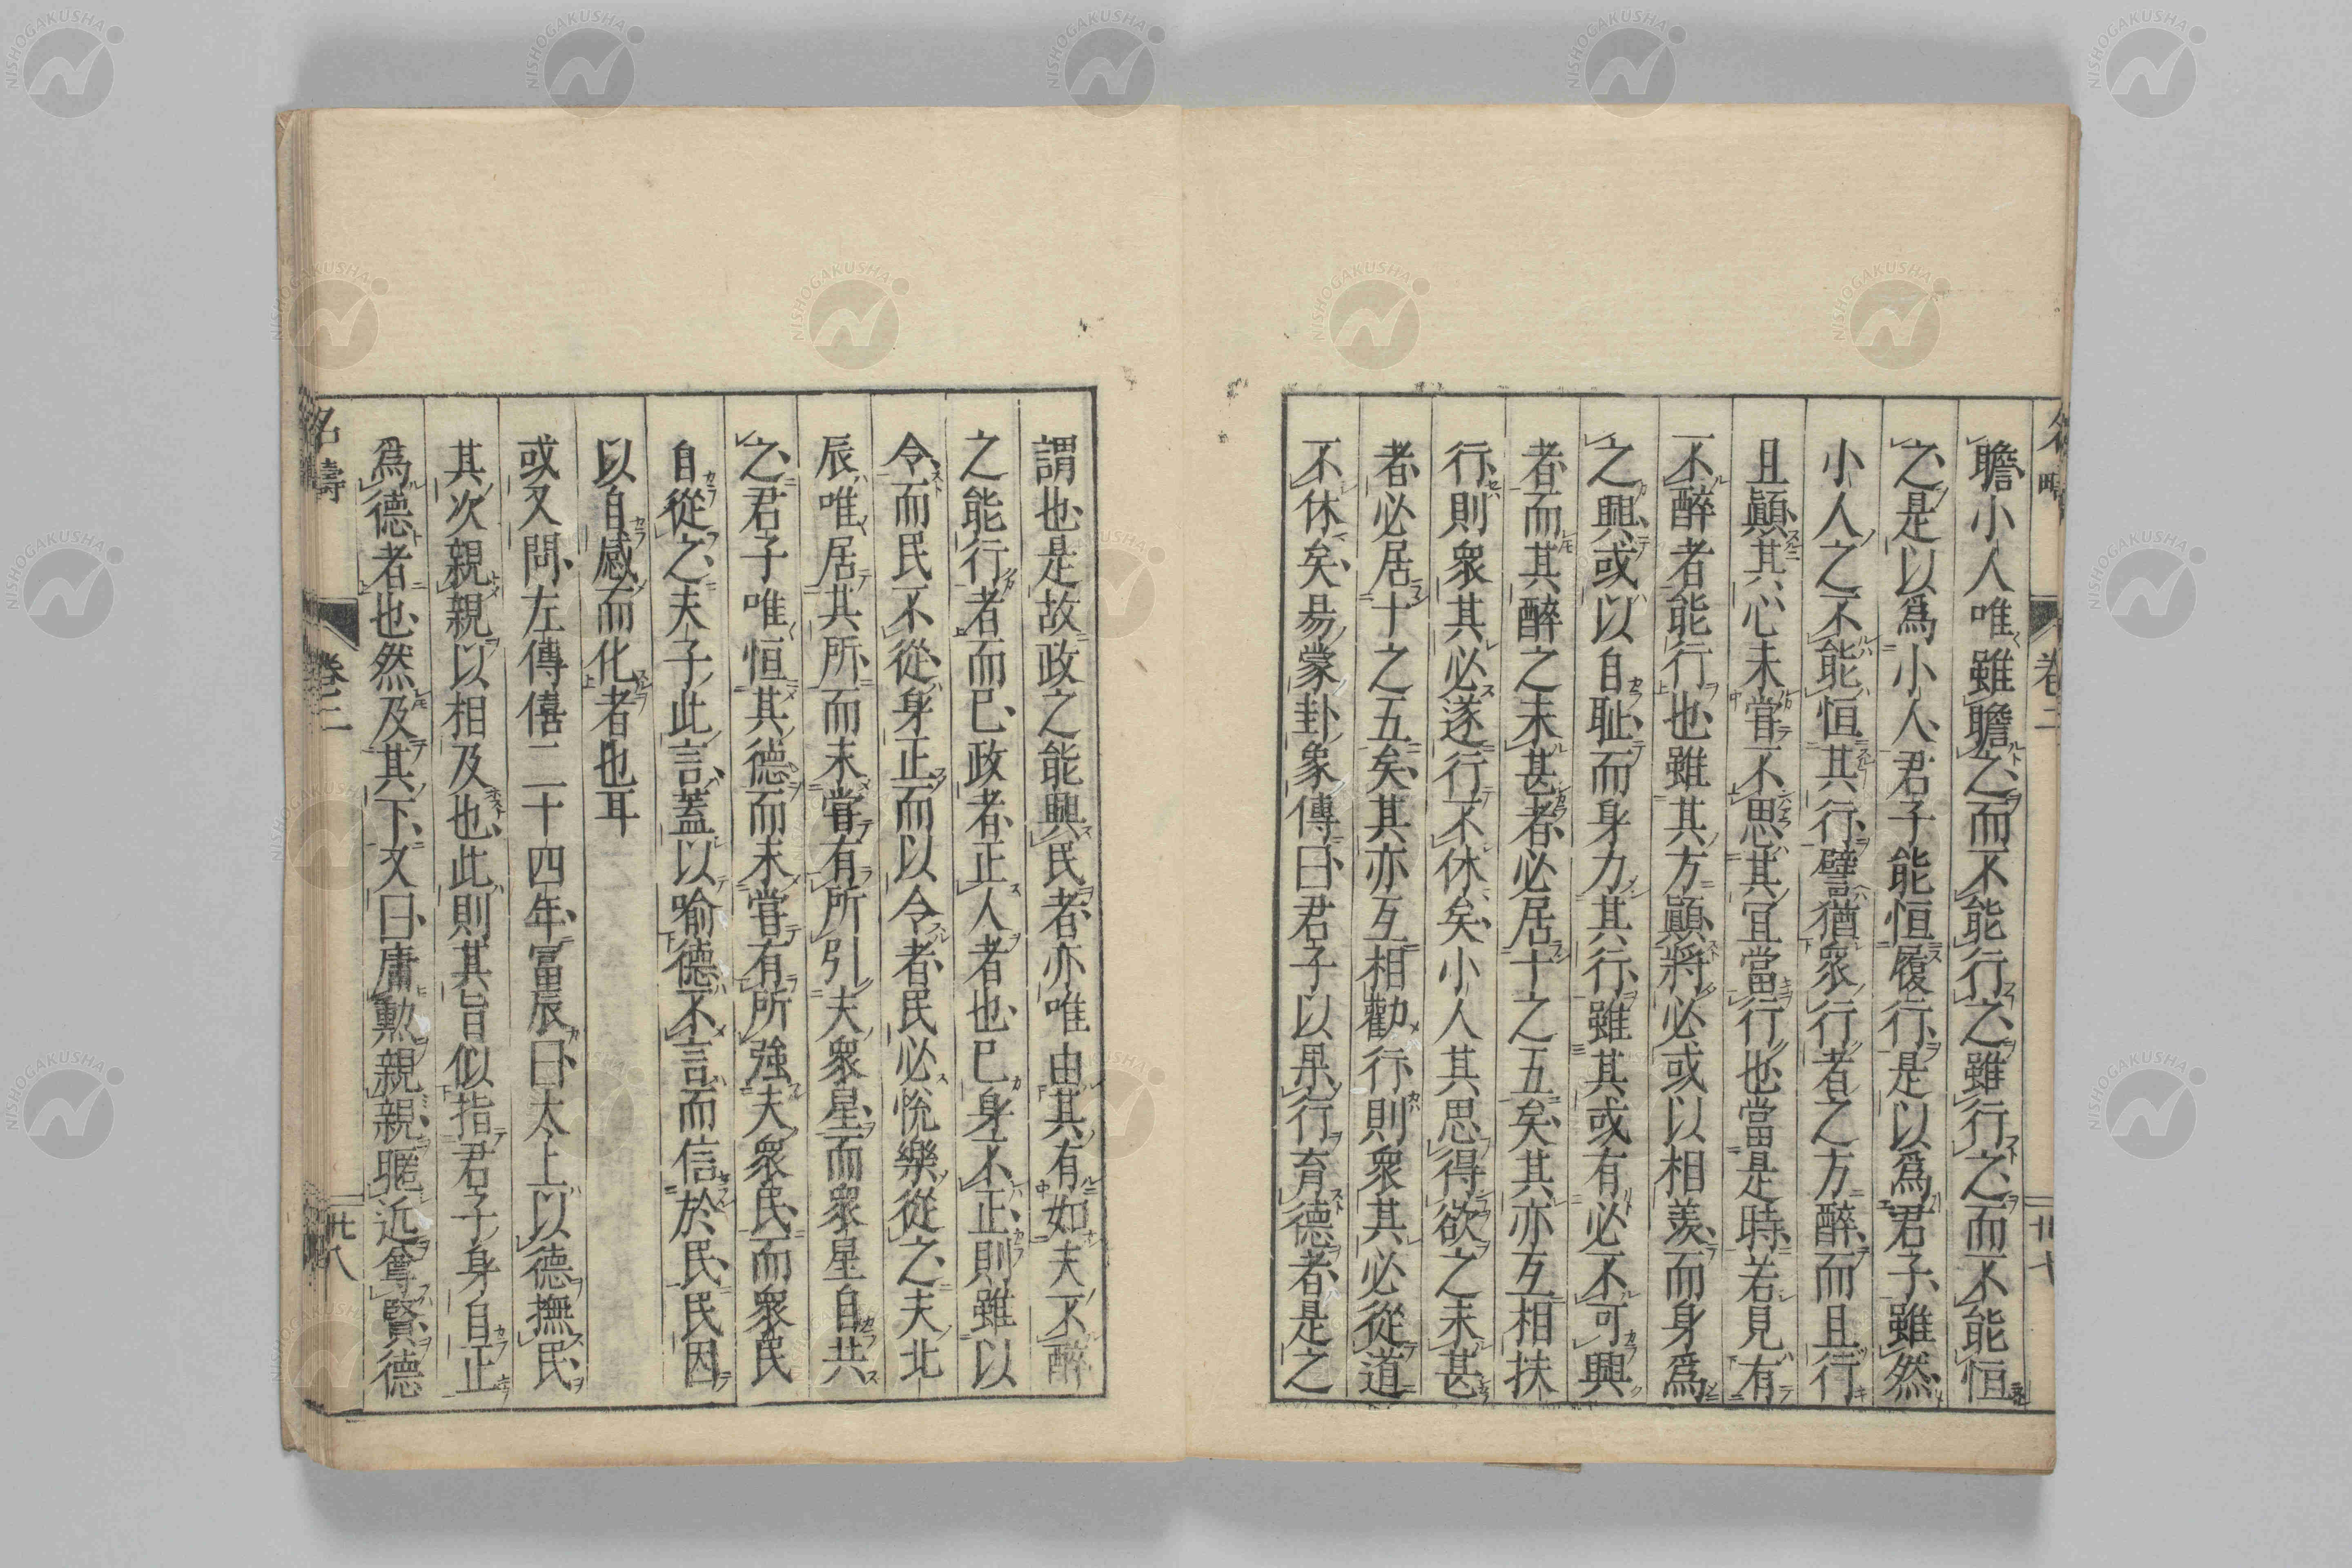 聸小人唯雖聸之而不能行之雖行之而不能恒
之是以爲小人君子能恒履行是以爲君子雖然
小人之不能恒其行譬猶衆行者之方醉而且行
且顚其心未嘗不思其宜當行也當是時若見有
不醉者能行也雖其方顚將必或以相羨而身爲
之興或以自耻而身力其行雖其或有必不可興
者而其醉之未甚者必居十之五矣其亦互相扶
行則衆其必遂行不休矣小人其思得欲之未甚
者必居十之五矣其亦互相勸行則衆其必從道
不休矣易蒙卦象傳曰君子以果行育德者是之
謂也是故政之能興民者亦唯由其有如夫不醉
之能行者而已政者正人者也已身不正則雖以
令而民不從身正而以令者民必悅樂從之夫北
辰唯居其所而未嘗有所引夫衆星而衆星自共
之君子唯恒其德而未嘗有所強夫衆民而衆民
自從之夫子此言蓋以喻德不言而信於民民因
以自感而化者也耳
或又問左傳僖二十四年富辰曰太上以德撫民
其次親親以相及也此則其旨似指君子身自正
爲德者也然及其下文曰庸勳親親暱近尊賢德
名疇
卷二
卅八